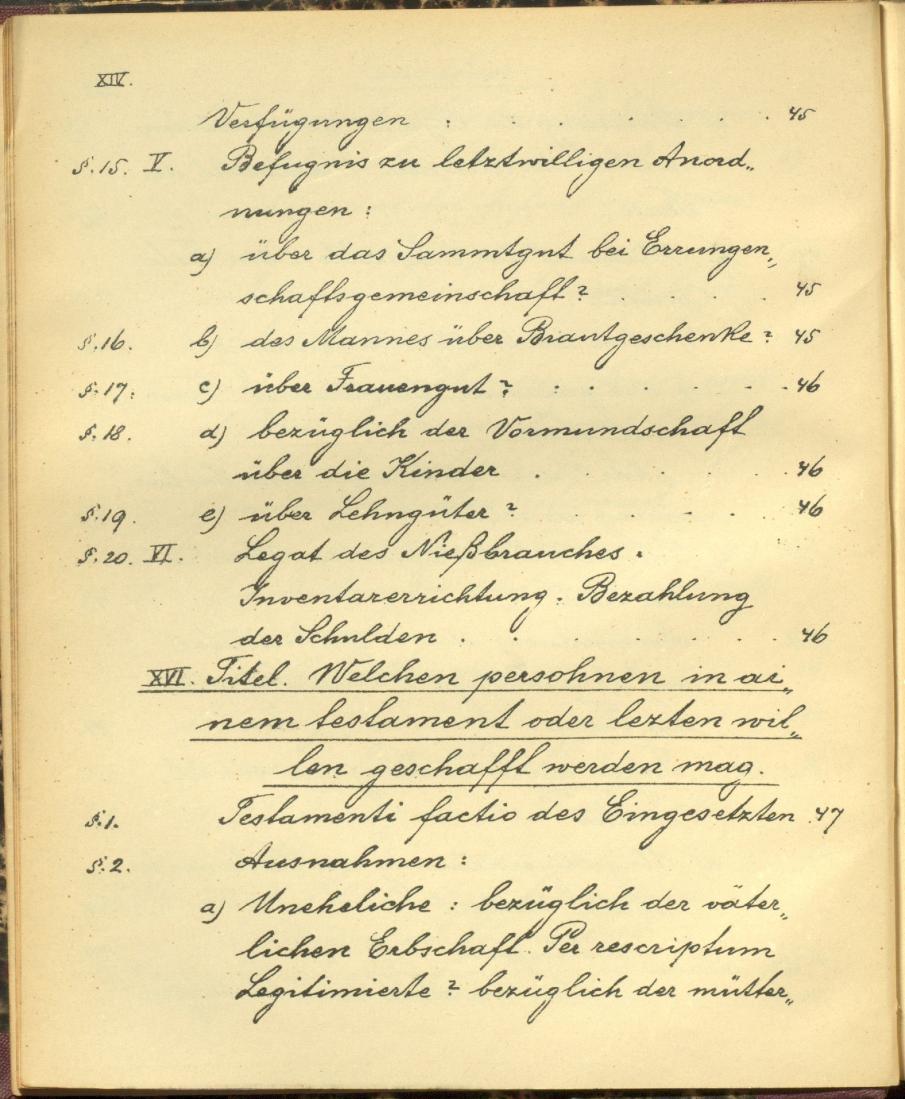 XIV.
Verfügungen : . . . . . . 45
§.15. V. Befugnis zu letztwilligen Anord„
nungen :
a) über das Sammtgut bei Errungen„
schaftsgemeinschaft ? . . . . 45
§.16. b) des Mannes über Brautgeschenke ? 45
§.17. c) über Frauengut ? . . . . . . 46
§.18. d) bezüglich der Vormundschaft
über die Kinder . . . . . . 46
§.19. e) über Lehngüter ? . . . . 46
§.20. VI. Legat des Nießbrauches .
Inventarerrichtung . Bezahlung
der Schulden . . . . . . . 46
XVI. Titel. Welchen persohnen in ai„
nem testament oder lezten wil„
len geschafft werden mag.
§.1. Testamenti factio des Eingesetzten 47
§.2. Ausnahmen :
a) Uneheliche : bezüglich der väter„
lichen Erbschaft. Per rescriptum
Legitimierte ? bezüglich der mütter„